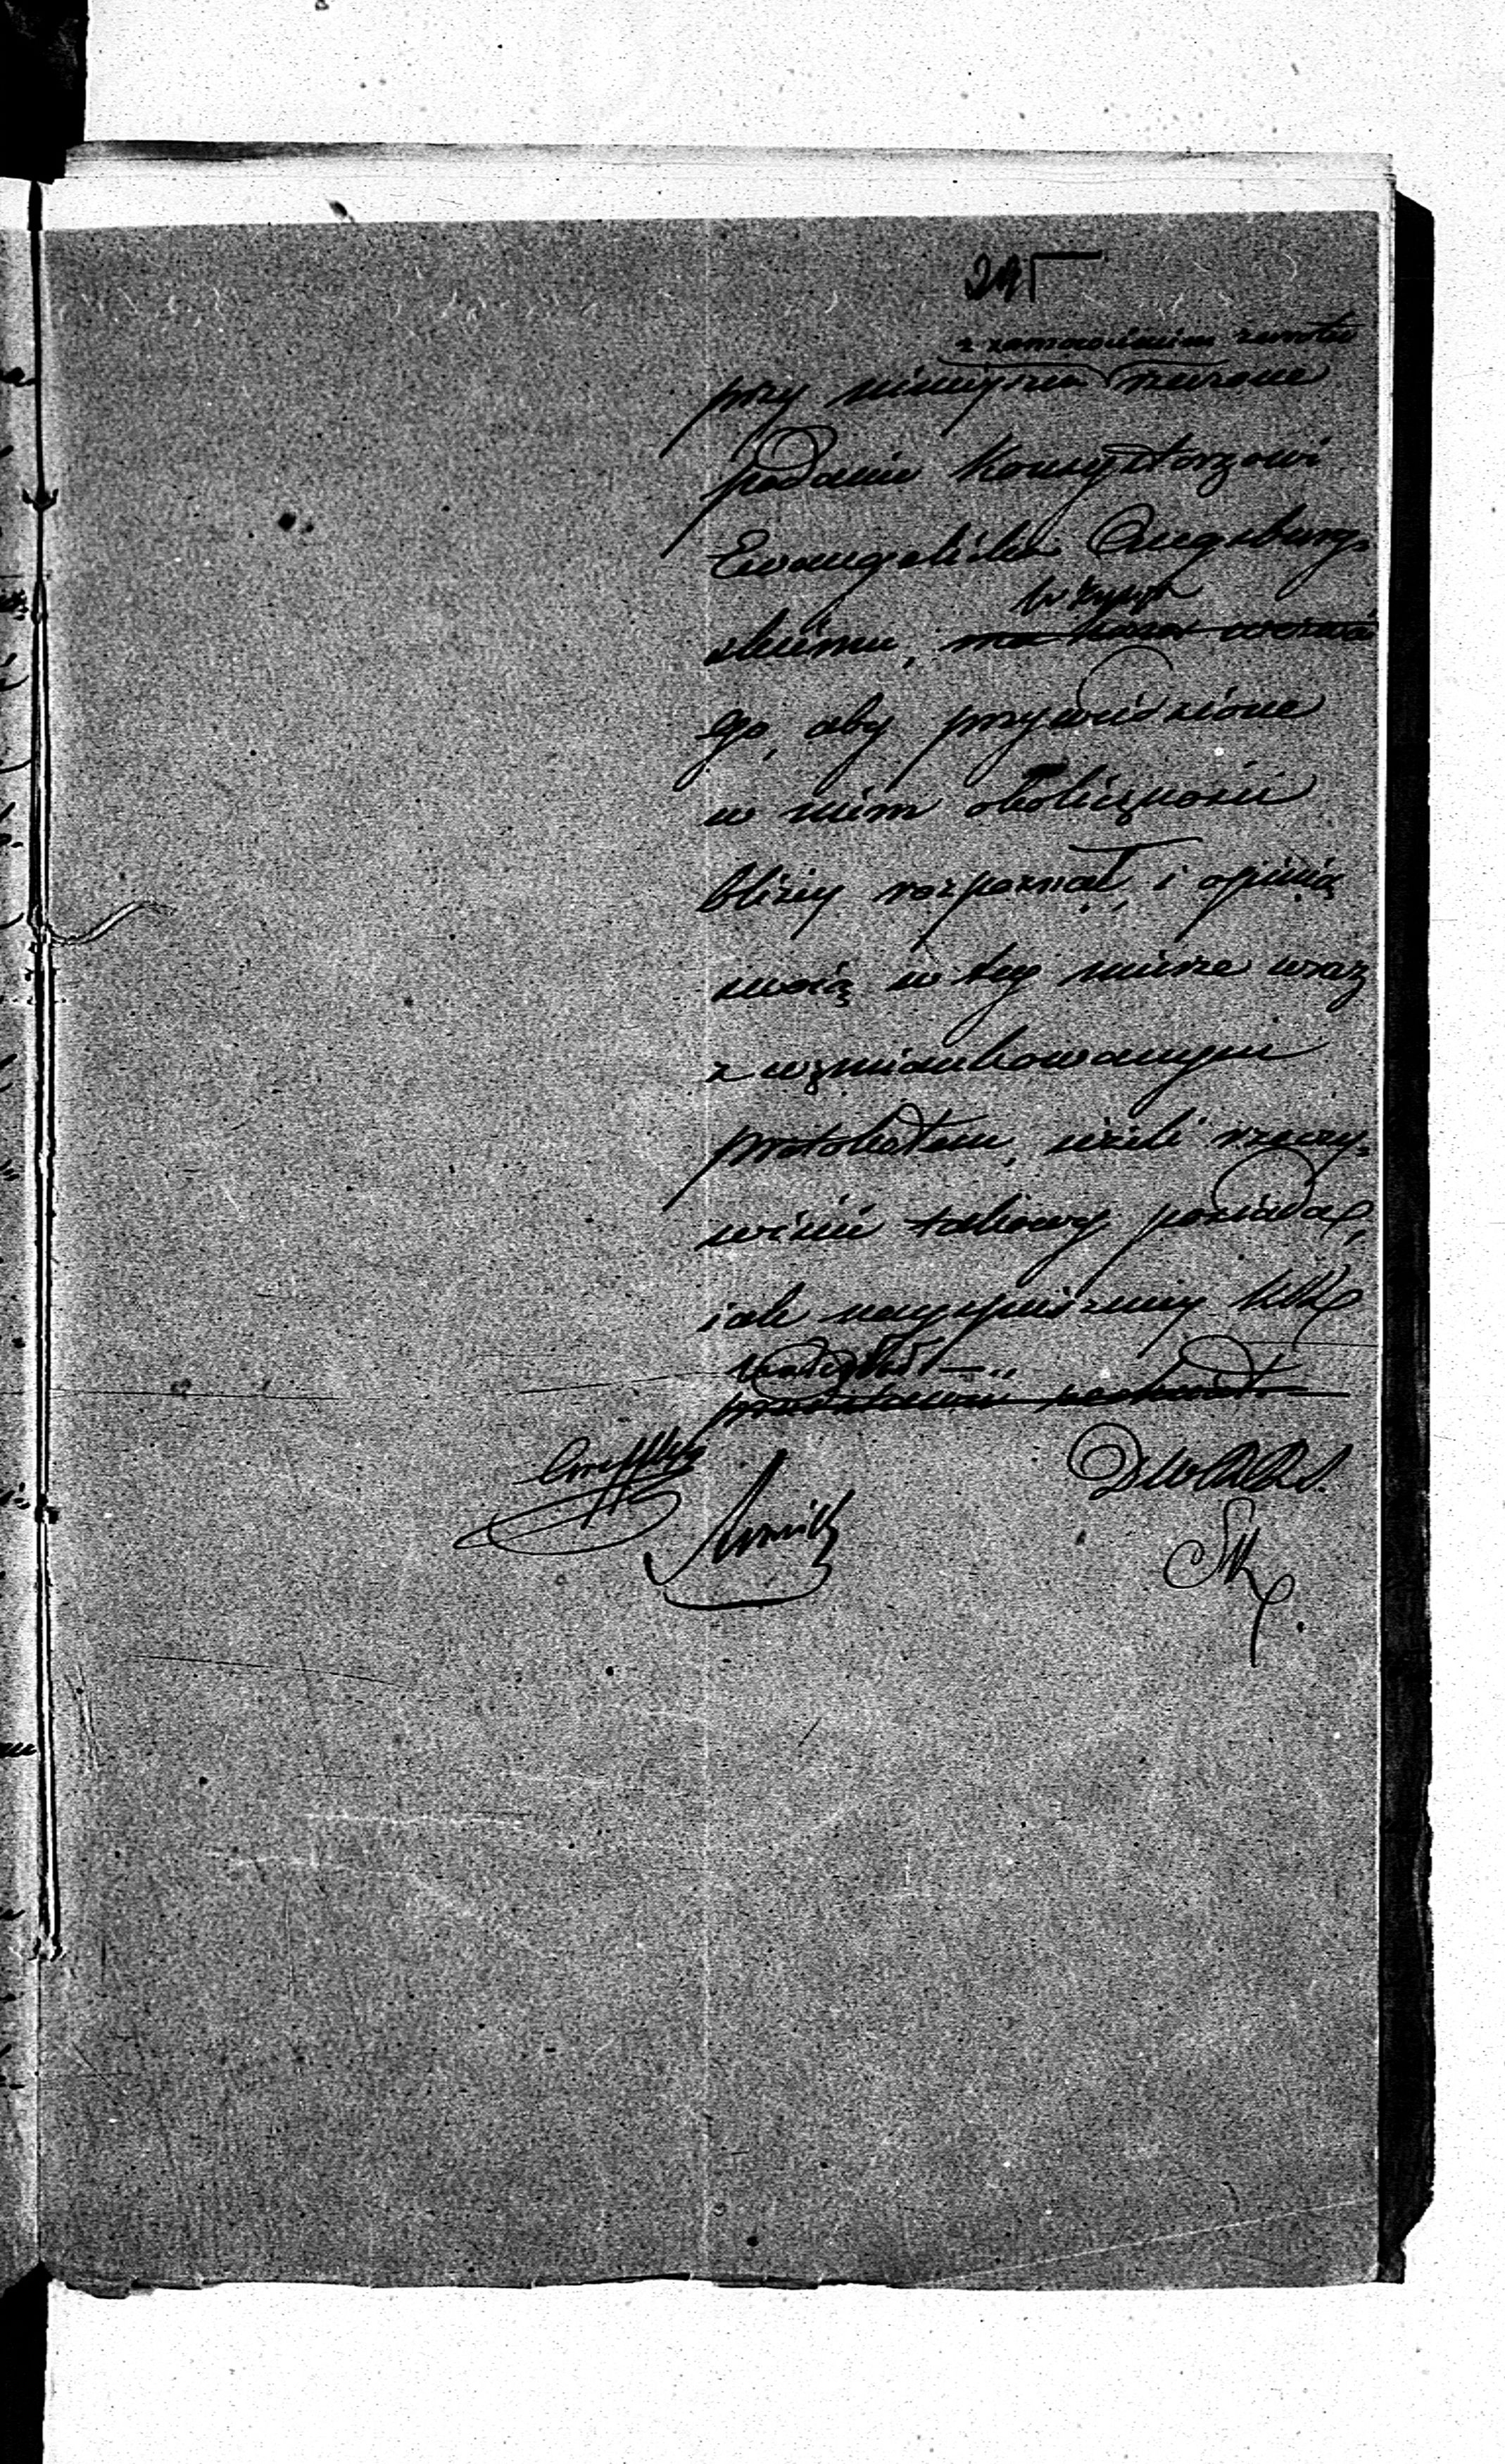 z zamówieniem zwrotu
przy niniejszem rzeczone
podanie Konsystorzowi
Ewangelicko Augsburg-
skiemu,
go, aby przywiedzione
w niem okoliczności
bliżey rozpoznał, i opinią
swoią w tey mierze wraz
z wzmiankowanym
protokołem, ieżeli rzeczy-
wiście takowy posiada,
iak nayspieszniey KR
przedstawić